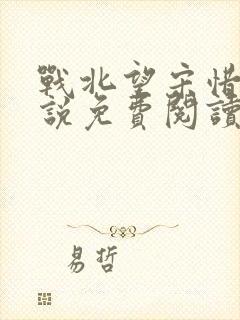 戰北望宋惜
說免費閱讀
易哲